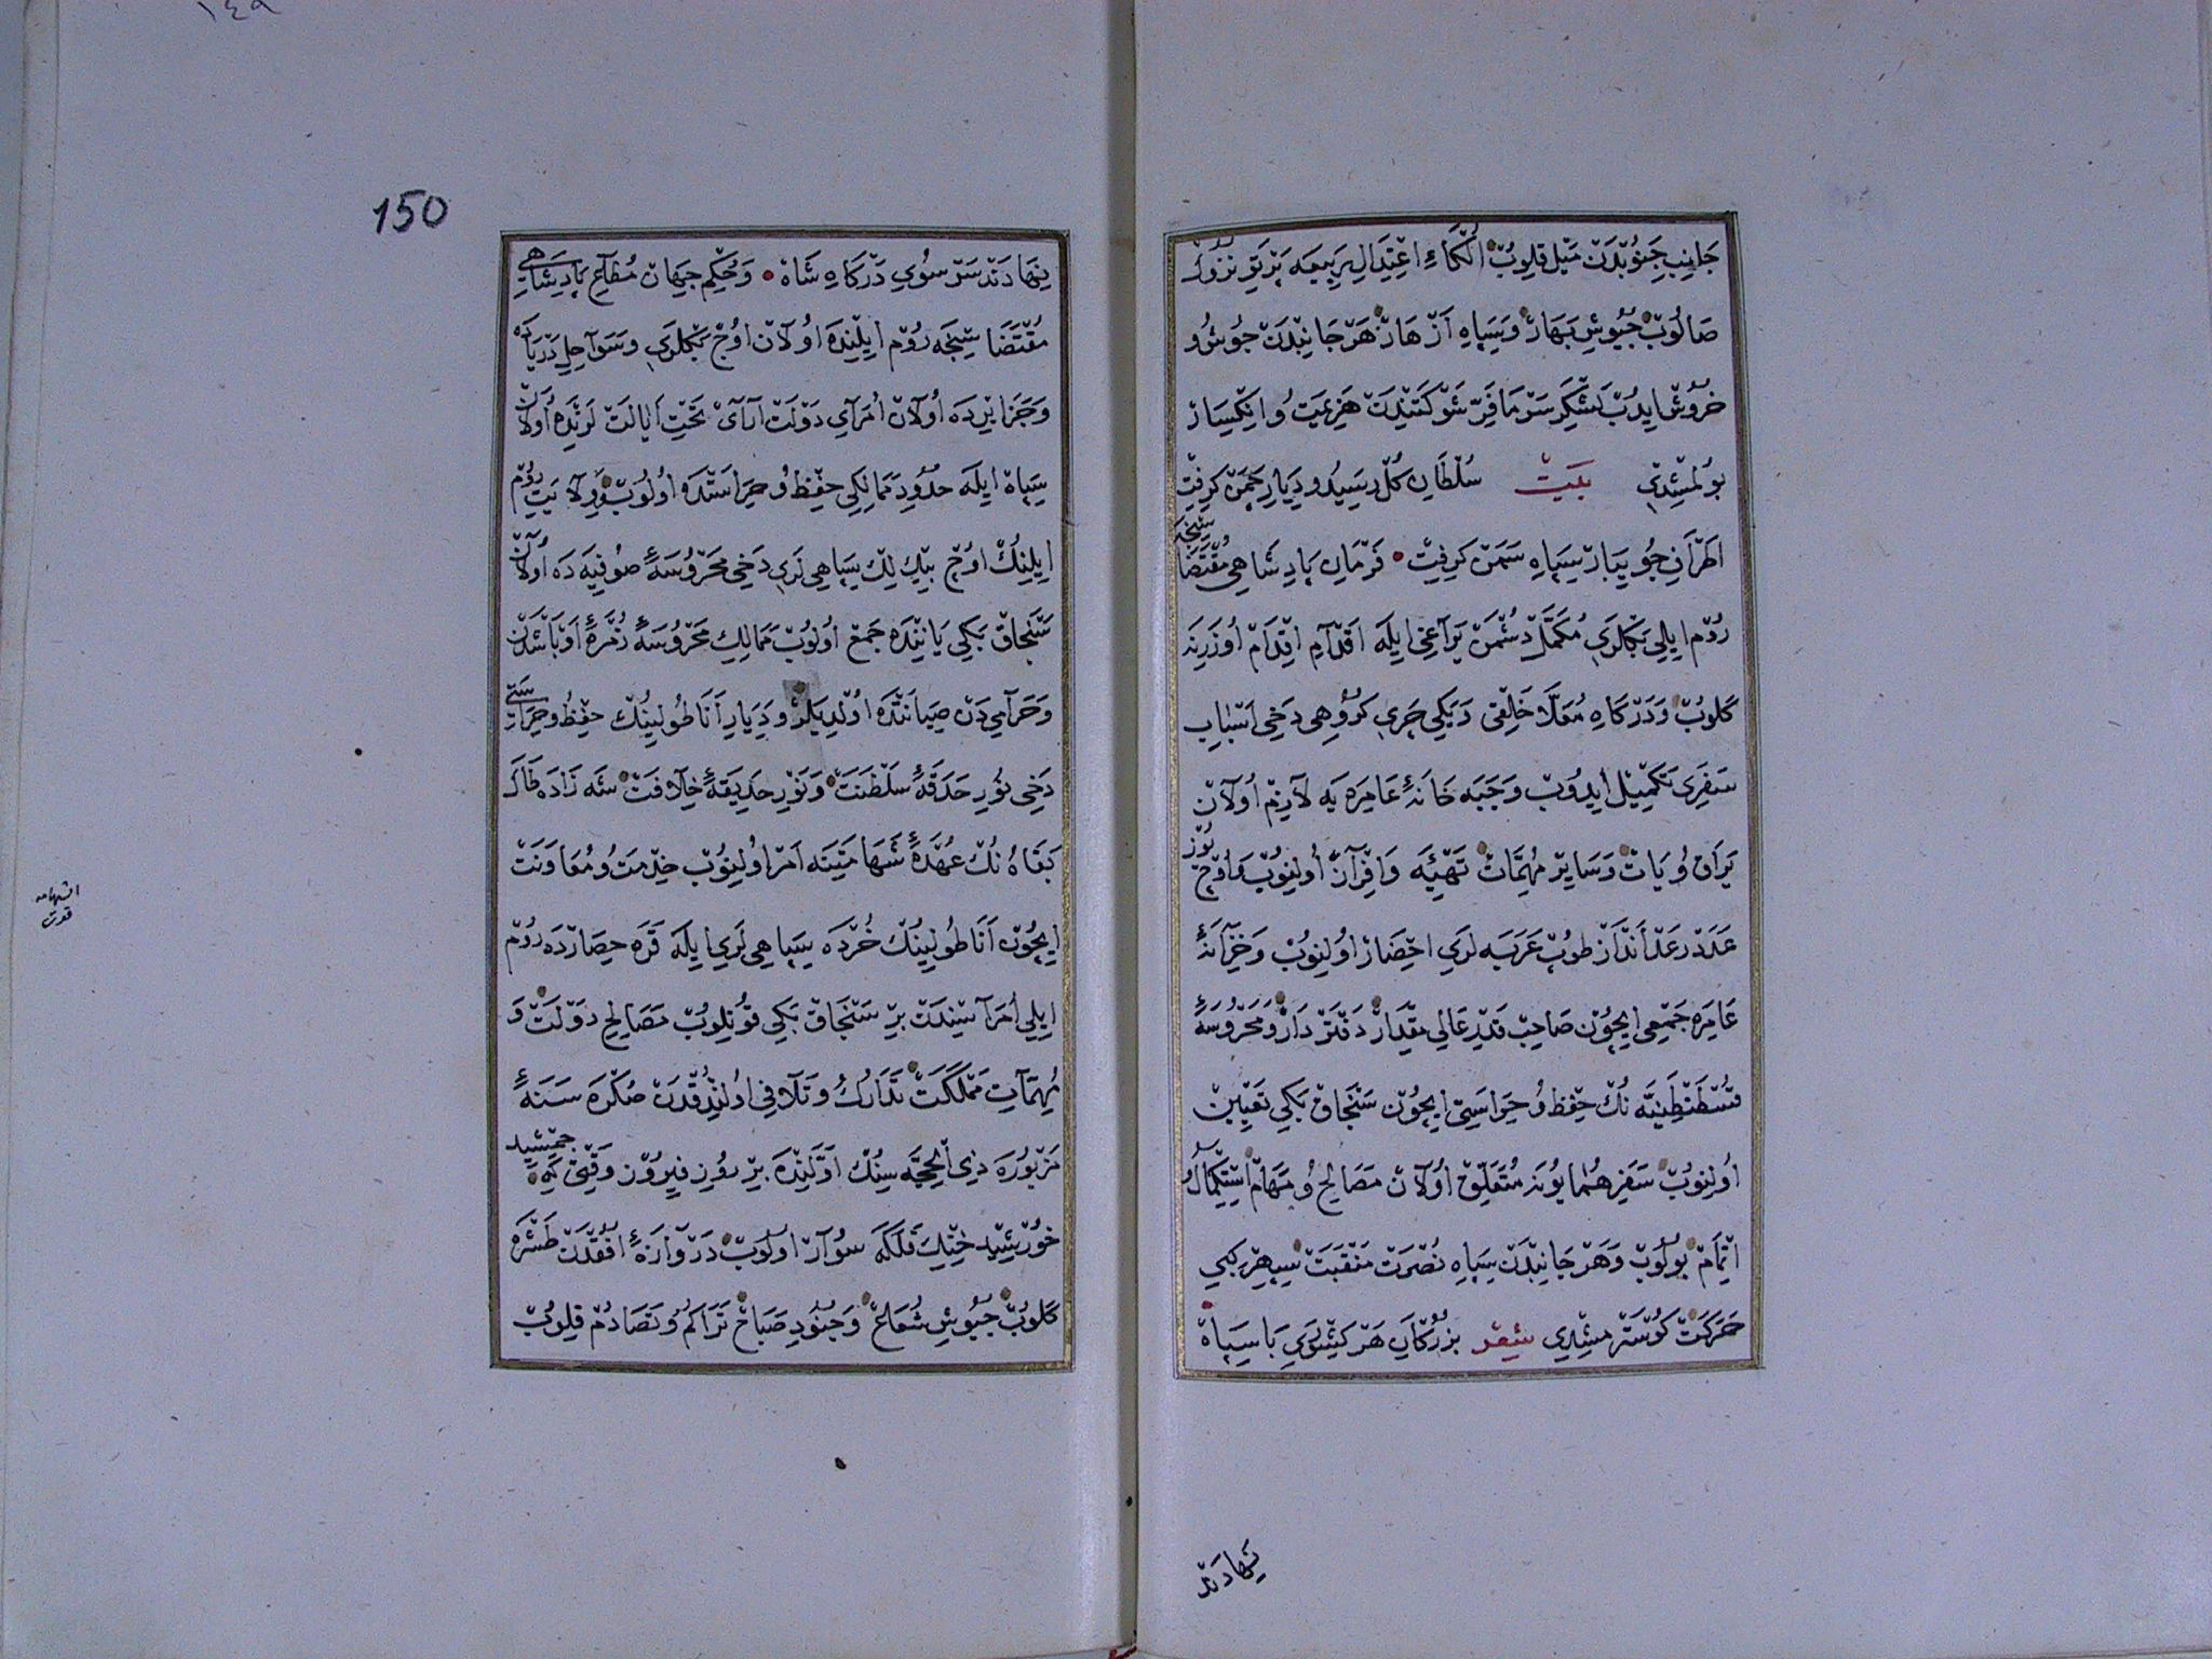 جَانِبِ جَنُوبْدَنْ مَيْل قِلُوبْ الْكَاءِ اعْتِدَالِ رَبِيعَه پَرْتَوِ نُزُولْ
صَالُوبْ جُيُوشِ بَهَارْ وَسِپَاهِ اَزْهَارْ هَرْ جَانِبْدَنْ جُوشُ و
خُرُوشْ ايدُبْ لَشْكَرِ سَرْمَا فَرِّ شَوْكَتِنْدَنْ هَزِيمَتْ وُ انْكِسَارْ
بُولْمِشْدِى بَيْتْ سُلْطَانِ كُلْ رَسِيدُ و دِيَارِ چَمَنْ كِرِفْتْ
اَطْرَافِ جُويبَارْ سِپَاهِ سَمَنْ كِرِفْتْ • فَرْمَانِ پَادِشَاهِى مُقْتَضَا سِنْجَه
رُوم ايلِى بَكْلَرِى مُكَمَّلْ دُشْمَنْ يَرَاغِى ايلَه اَقْدَامِ اِقْدَامْ اُوزَرِينَه
كَلُوبْ وَدَرْكَاهِ مُعَلَّا خَلْقِى وَيَكِى چَرِى كُرُوهِى دَخِى اَسْبَابِ
سَفَرِى تَكْمِيْل ايدُوبْ وَجَبَه خَانَهٔ عَامِرَه يَه لَازِمْ اُولَانْ
يَرَاقْ وُ يَاتْ وَسَايِرْ مُهِمَّاتْ تَهْيِئَه وَافِرَانْ اُولِنُوبْ وَاوُچْ يُوزْ
عَدَدْ رَعْد اَنْدَازْ طُوپْ عَرَبَه لَرِى احْضَارْ اوُلِنُوبْ وَخِزَانَهٔ
عَامِرَه جَمْعِى ايچُونْ صَاحِبْ قَدْرِ عَالِى مِقْدَارْ دَفْتَرْدَارْ وُ مَحْرُوسَهٔ
قُسْطَنْطِينِيَّه نُكْ حِفْظ وُ حِرَاسَتِى ايچُونْ سَنْجَاقْ بَكِى تَعْيِينْ
اُولِنُوبْ سَفَرِ هُمَايُونَه مُتَعَلِّقْ اُولَانْ مَصَالِحْ وُ مَهَامّْ اسْتِكْمَالُ و
اتْمَامْ بُولُوبْ وَهَرْ جَانِبْدَنْ سِپَاهِ نُصْرَتْ مَنْقَبَتْ سِپِهْر كِبِى
حَرَكَتْ كُوسْتَرْمِشِدِى شِعْر بُزُرْكَانِ هَرْ كِشْوَرِى بَا سِپَاهْ
نِهَادَنْد
150
نِهَادَنْد سَرْ سُوىِ دَرْكَاهِ شَاهْ • وَحُكْمِ جِهَانْ مُطَاعِ پَادِشَاهِى
مُقْتَضَا سِنْجَه رُوم ايلِنْدَه اُولَانْ اوُجْ بَكْلَرِى وَسَوَاحِلِ دَرْيَادَه
وَجَزَايِرْدَه اُولَانْ اُمَرَاىِ دَوْلَتْ آرَاىْ تَحْتِ اَيَالَتْ لَرِنْدَه اُولَانْ
سِپَاهْ ايلَه حُدُودِ مَمَالِكِى حِفْظ وُ حِرَاسَتْدَه اُولُوبْ وِلَايَتِ رُوم
ايلِنِكْ اوُجْ بَيْكِ لِكْ سِپَاهِى لَرِى دَخِى مَحْرُوسَهٔ صُوفِيَه دَه اُولَانْ
سَنْجَاقْ بَكِى يَانِنْدَه جَمْع اُولُوبْ مَمَالِكِ مَحْرُوسَهٔ زُمْرَهٔ اَوْبَاشْدَنْ
وَحَرَامِى دَنْ صِيَانَتْدَه اُولْدِيلَرْ وَدِيَارِ اَنَاطُولِينُكْ حِفْظ وُ حِرَاسَتِى
دَخِى نُورِ حَدَقَهٔ سَلْطَنَتْ وَنَوْرِ حَدِيقَهٔ خِلَافَتْ شَه زَادَه طَالَ
بَقَاهُ نُكْ عُهْدَهٔ شَهَامَتِينَه اَمْر اوُلِنُوبْ خِدْمَتْ وُ مُعَاوَنَتْ
ايچُونْ اَنَاطُولِينُكْ خُرْدَه سِپَاهِى لَرِى ايلَه قَرَه حِصَارْدَه رُوم
ايلِى اُمَرَاسِنْدَنْ بِرْ سَنْجَاقْ بَكِى قُونِلُوبْ مَصَالِحِ دَوْلَتْ وَ
مُهِمَّاتِ مَمْلَكَتْ تَدَارُكْ وُ تَلَافِى اُولِنْدُقْدَنْ صُكْرَه سَنَهٔ
مَزْبُورَه ذِى الْحِجَّه سِنُكْ اَوَّلِنْدَه بِرْ رُوزِ فِيرُوزْ وَقْتِى كِه جَمْشِيد
خُورْشِيدْ خِنْكِ فَلَكَه سُوَارْ اُولُوبْ دَرْوَازَهٔ اُفُقْدَنْ طَشْرَه
كَلُوبْ جُيُوشِ شُعَاعْ وَجُنُودِ صَبَاحْ تَرَاكُمْ وُ تَصَادُمْ قِلُوبْ